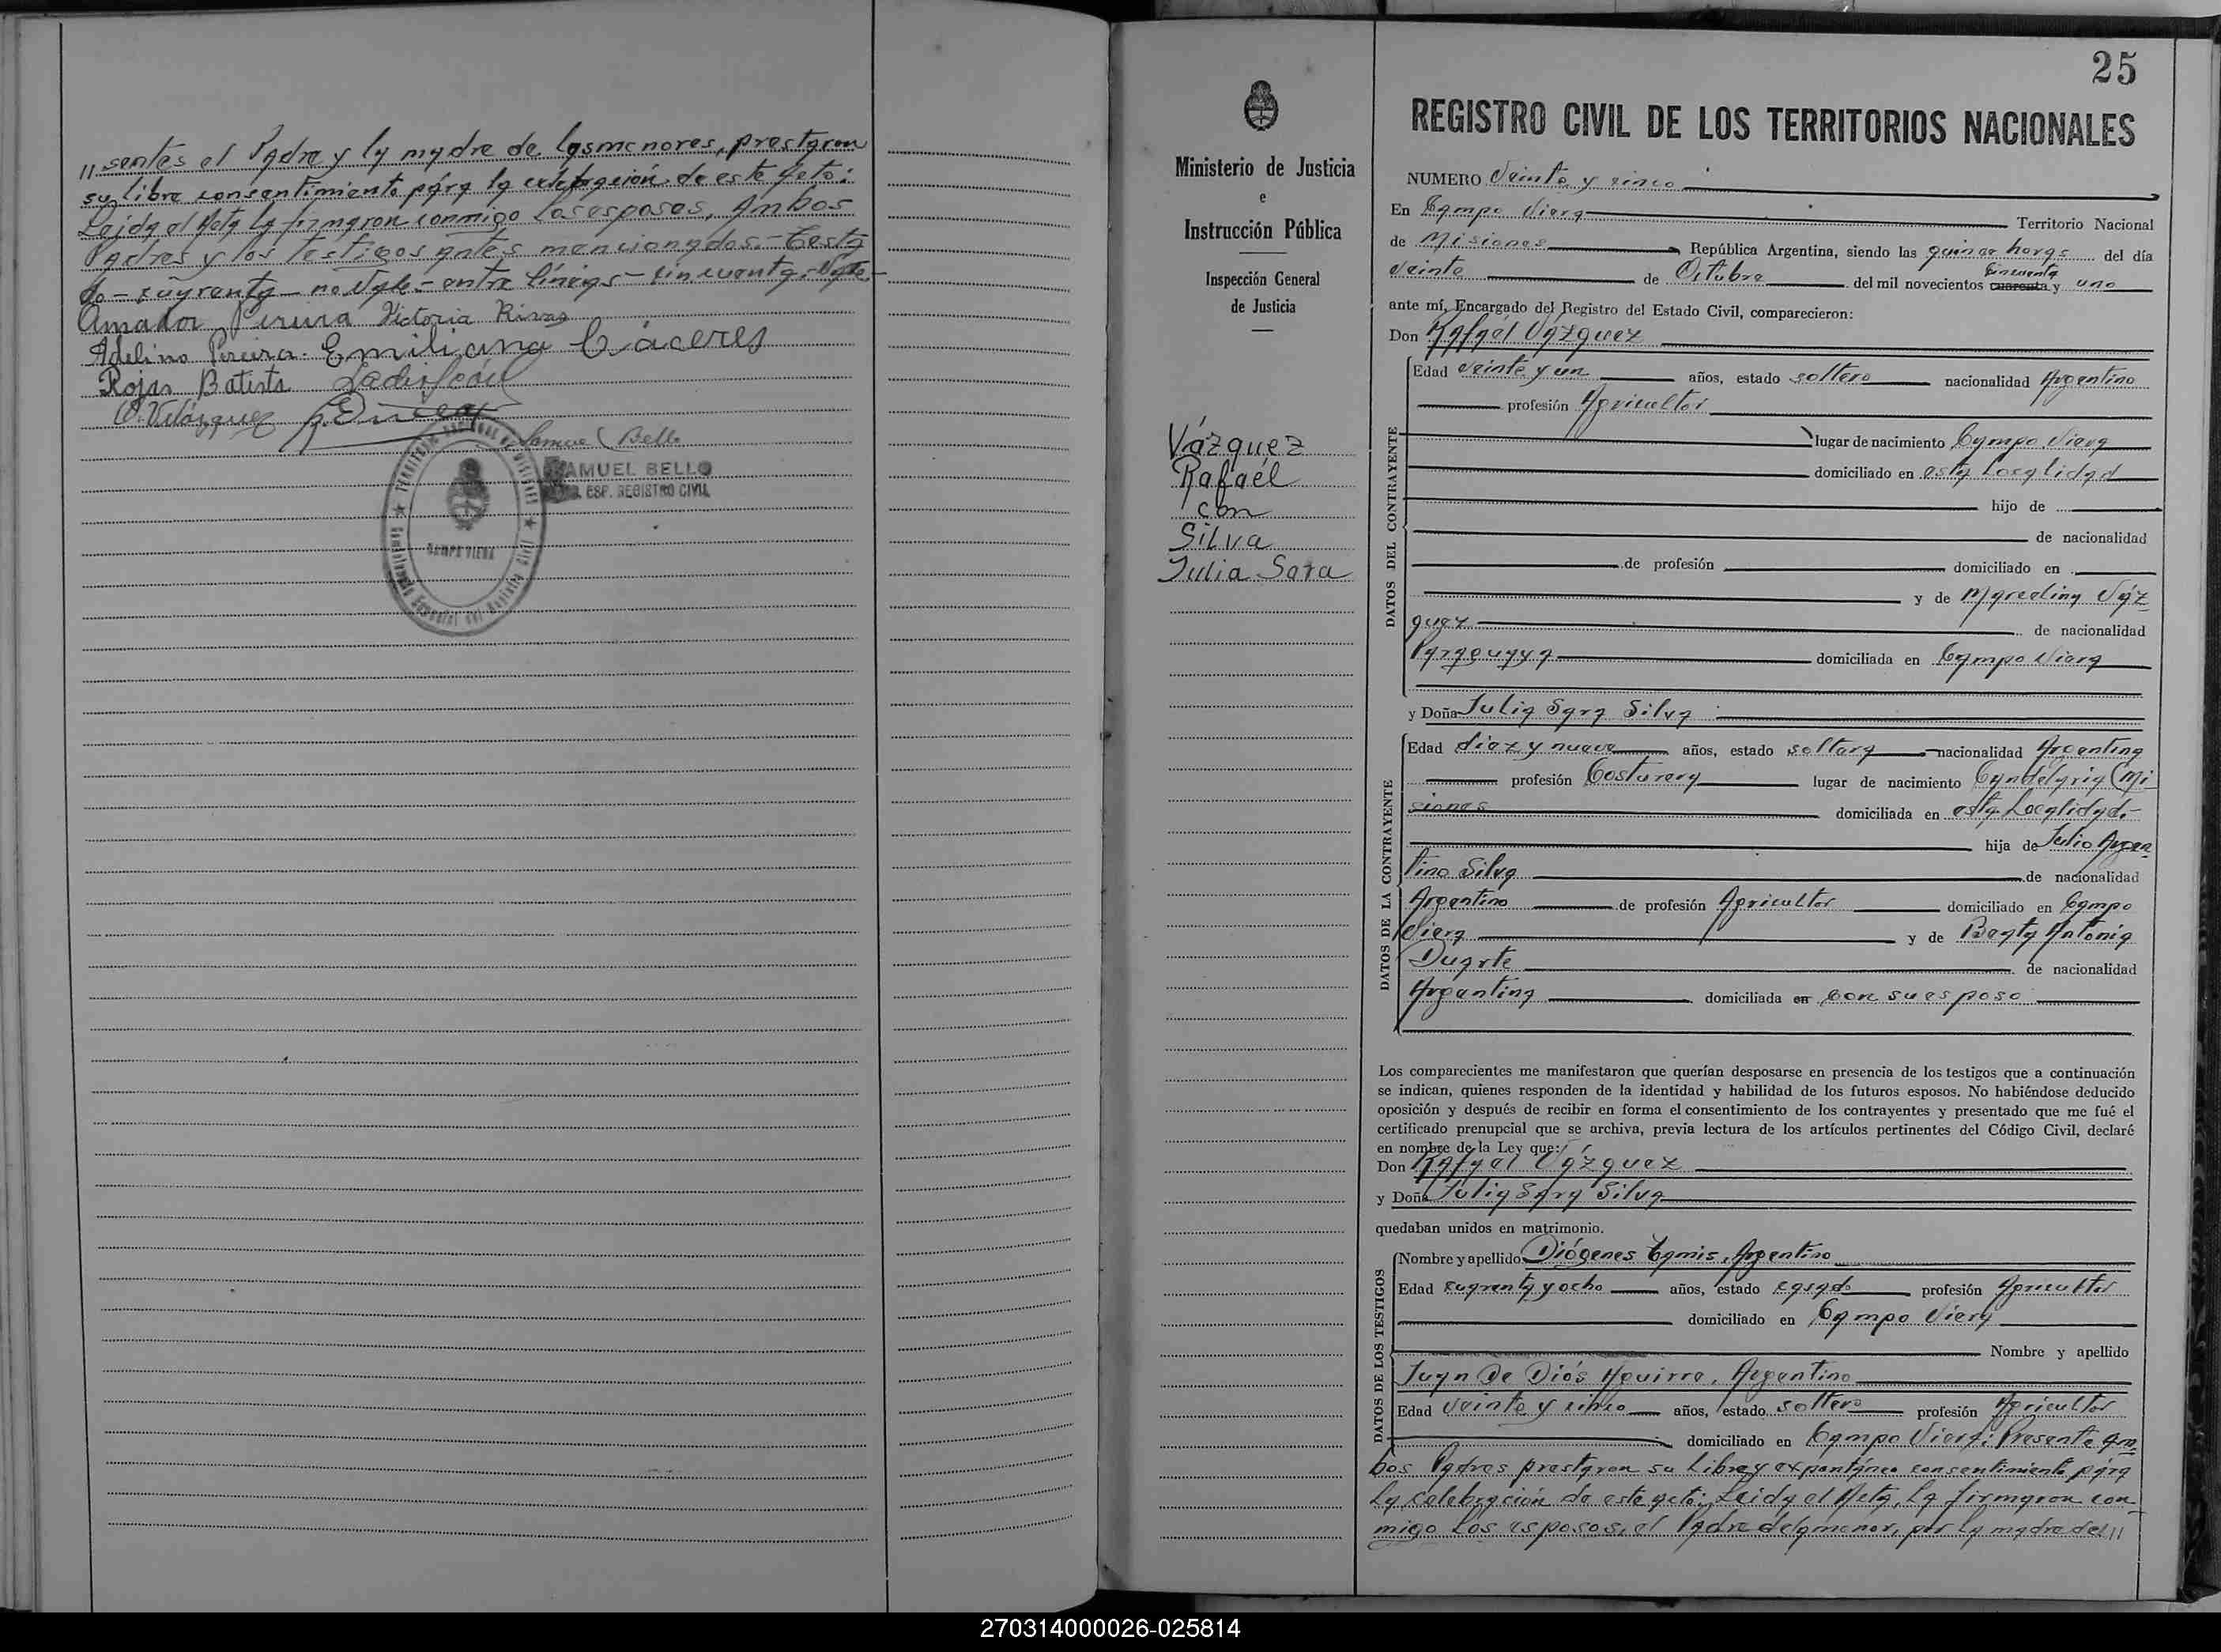 //sentes el Padre y la madre de las menores, prestaron
su libre consentimiento para la celebración de este Acto:
Leida el Acta la firmaron conmigo los esposos, Ambos
Padres y los testigos antes mencionados.- Testa
do - cuarenta - no Vale - entre líneas - cincuenta: Vale.-
Amador Pereira Victoria Rivas
Adelino Pereira. Emiliana Cáceres
Rojas Batista
O. Velázquez
Samuel Bello
SAMUEL BELLO
ESP. REGISTRO CIVIL
CAMPO VIERA
25
Ministerio de Justicia
e
Instrucción Pública
Inspección General
de Justicia
Vázquez
Rafael
con
Silva
Julia Sara
REGISTRO CIVIL DE LOS TERRITORIOS NACIONALES
NUMERO Veinte y cinco
En Campo Viera Territorio Nacional
de Misiones República Argentina, siendo las quince horas del día
cincuenta
veinte de Octubre del mil novecientos cuarenta y uno
ante mí, Encargado del Registro del Estado Civil, comparecieron:
Don Rafael Vázquez
DATOS DEL CONTRAYENTE
Edad veinte y un años, estado soltero nacionalidad Argentino
profesión Agricultor
lugar de nacimiento Campo Viera
domiciliado en esta Localidad
hijo de
de nacionalidad
de profesión domiciliado en
y de Marcelina Váz
quez de nacionalidad
Paraguaya domiciliada en Campo Viera
y Doña Julia Sara Silva
DATOS DE LA CONTRAYENTE
Edad diez y nueve años, estado soltera nacionalidad Argentina
profesión Costurera lugar de nacimiento Candelaria (Mi-
siones domiciliada en esta Localidad.-
hija de Julio Argen
tino Silva de nacionalidad
Argentino de profesión Agricultor domiciliado en Campo
Viera y de Antonia
Duarte de nacionalidad
Argentina domiciliada en con su esposo
Los comparecientes me manifestaron que querían desposarse en presencia de los testigos que a continuación
se indican, quienes responden de la identidad y habilidad de los futuros esposos. No habiéndose deducido
oposición y después de recibir en forma el consentimiento de los contrayentes y presentado que me fué el
certificado prenupcial que se archiva, previa lectura de los artículos pertinentes del Código Civil, declaré
en nombre de la Ley que:
Don Rafael Vázquez
y Doña Julia Sara Silva
quedaban unidos en matrimonio.
DATOS DE LOS TESTIGOS
Nombre y apellido Diógenes Camis, Argentino
Edad cuarenta y ocho años, estado casado profesión Agricultor
domiciliado en Campo Viera
Nombre y apellido
Juan De Diós Aguirre, Argentino
Edad veinte y cinco años, estado soltero profesión Agricultor
domiciliado en Campo Viera: Presente am
bos Padres prestaron su libre y expontáneo consentimiento para
la celebración de este acto: Leida el Acta, la firmaron con
migo los esposos, el Padre de la menor, por la madre del//
270314000026-025814